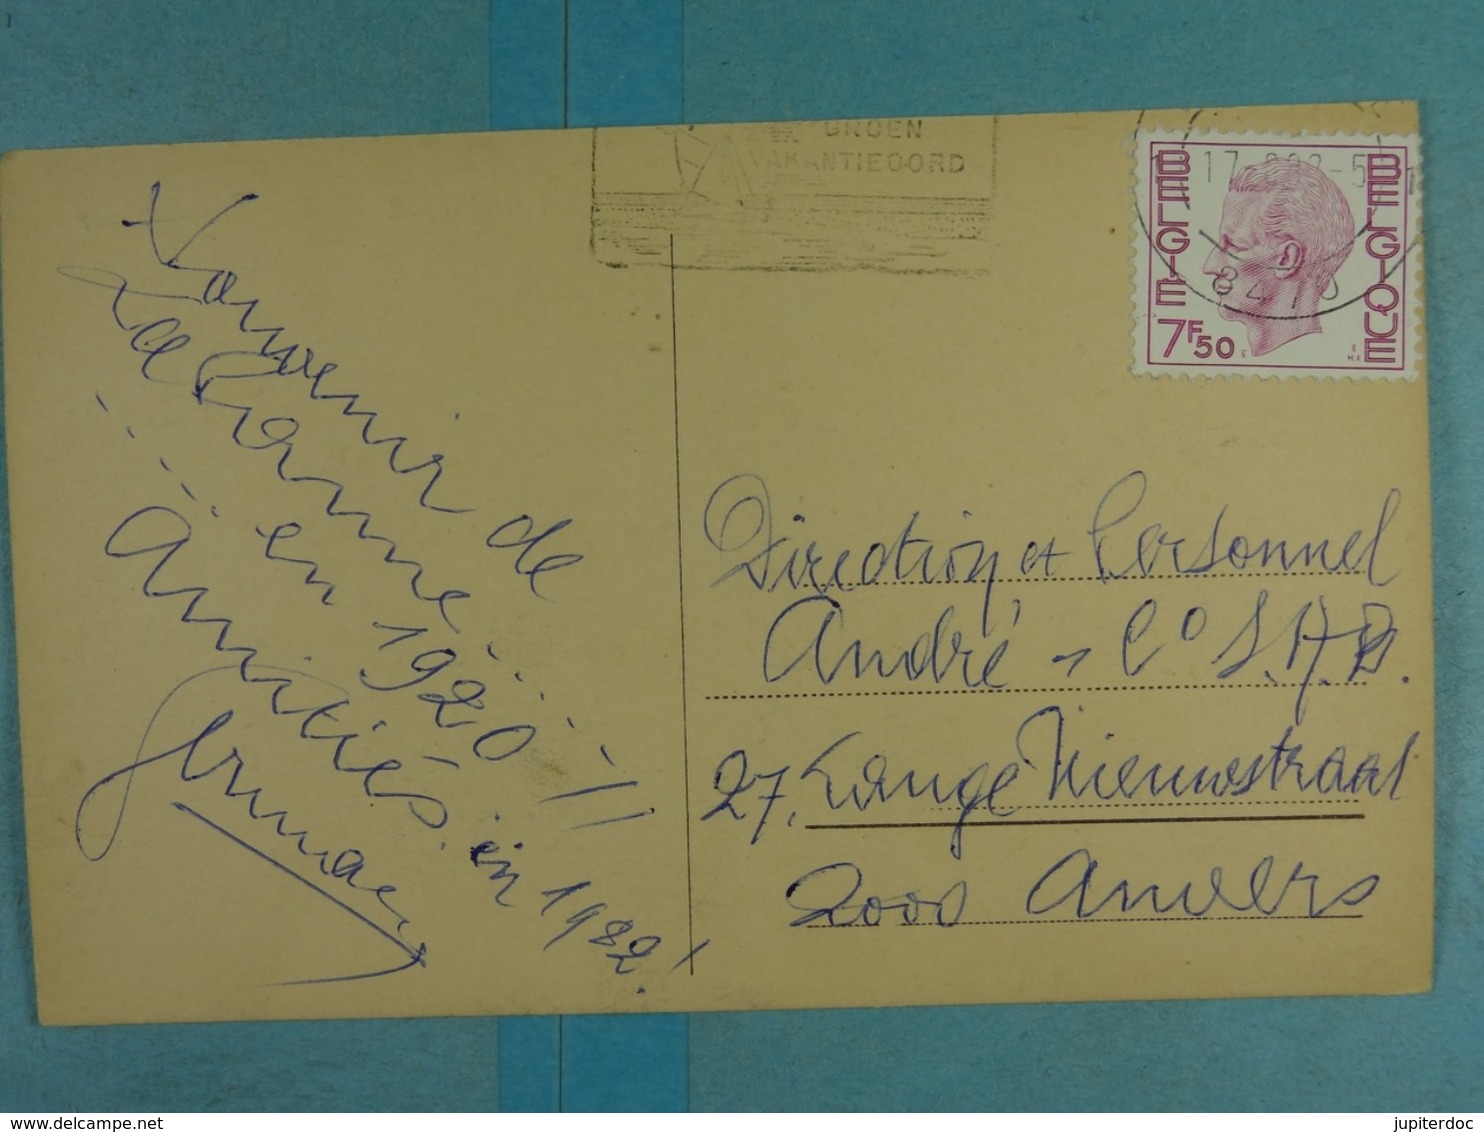 Souvenir de
La Panne
... en 1920 !!
Amitiés en 1982!
GROEN
VAKANTIEOORD
BELGIE
BELGIQUE
7F50
8470
Direction et Personnel
André - C° S.A.B.
27, Lange Nieuwstraat
2000 Anvers
www.delcampe.net
jupiterdoc